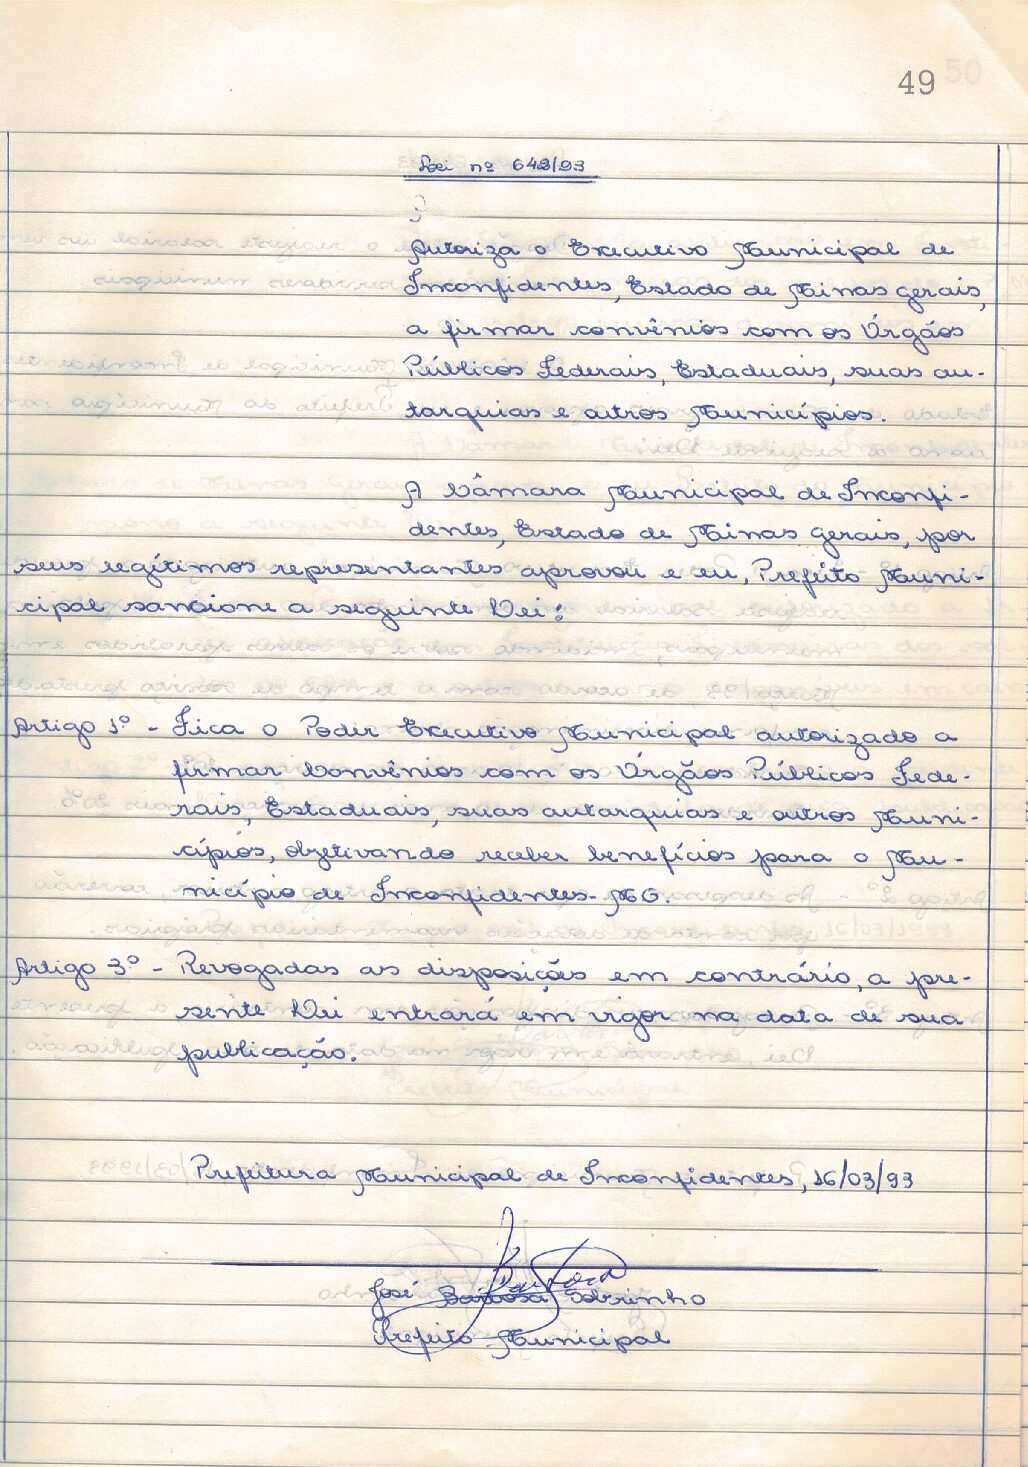 49 50
Lei nº 642/93
Autoriza o Executivo Municipal de
Inconfidentes, Estado de Minas Gerais,
a firmar convênios com os Órgãos
Públicos Federais, Estaduais, suas au-
tarquias e outros Municípios.
A Câmara Municipal de Inconfi-
dentes, Estado de Minas Gerais, por
seus legítimos representantes aprovou e eu, Prefeito Muni-
cipal sancione a seguinte Lei:
Artigo 1º - Fica o Poder Executivo Municipal autorizado a
firmar Convênios com os Órgãos Públicos Fede-
rais, Estaduais, suas autarquias e outros Muni-
cípios, objetivando receber benefícios para o Mu-
nicípio de Inconfidentes-MG.
Artigo 3º - Revogadas as disposições em contrário, a pre-
sente Lei entrará em vigor na data de sua
publicação.
Prefeitura Municipal de Inconfidentes, 16/03/93
José Barbosa Sobrinho
Prefeito Municipal